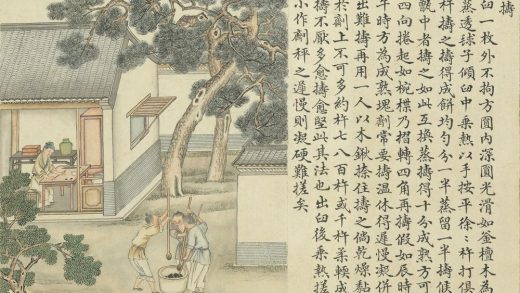 擣
臼一枚外不拘方圓內深圓光滑如釜檀木為
蒸透球子傾臼中乘熱以手按平徐々杵打俱
杵擣之擣得成餅均勻分一半蒸留一半擣候
甑中者擣之如此互換蒸擣得十分成熟方可
四向捲起如椀楪乃摺轉四角再擣假如辰時
午時方為成熟堪劑常要擣溫休得遲慢凝併
出難擣再用一人以木鍬搽住擣之倘乾燥黏
於劑上不可多約杵七八百杵或千杵柔輭成
擣不厭多愈擣愈堅此其法也出臼後乘熱搓
小作劑秤之遲慢則凝硬難搓矣